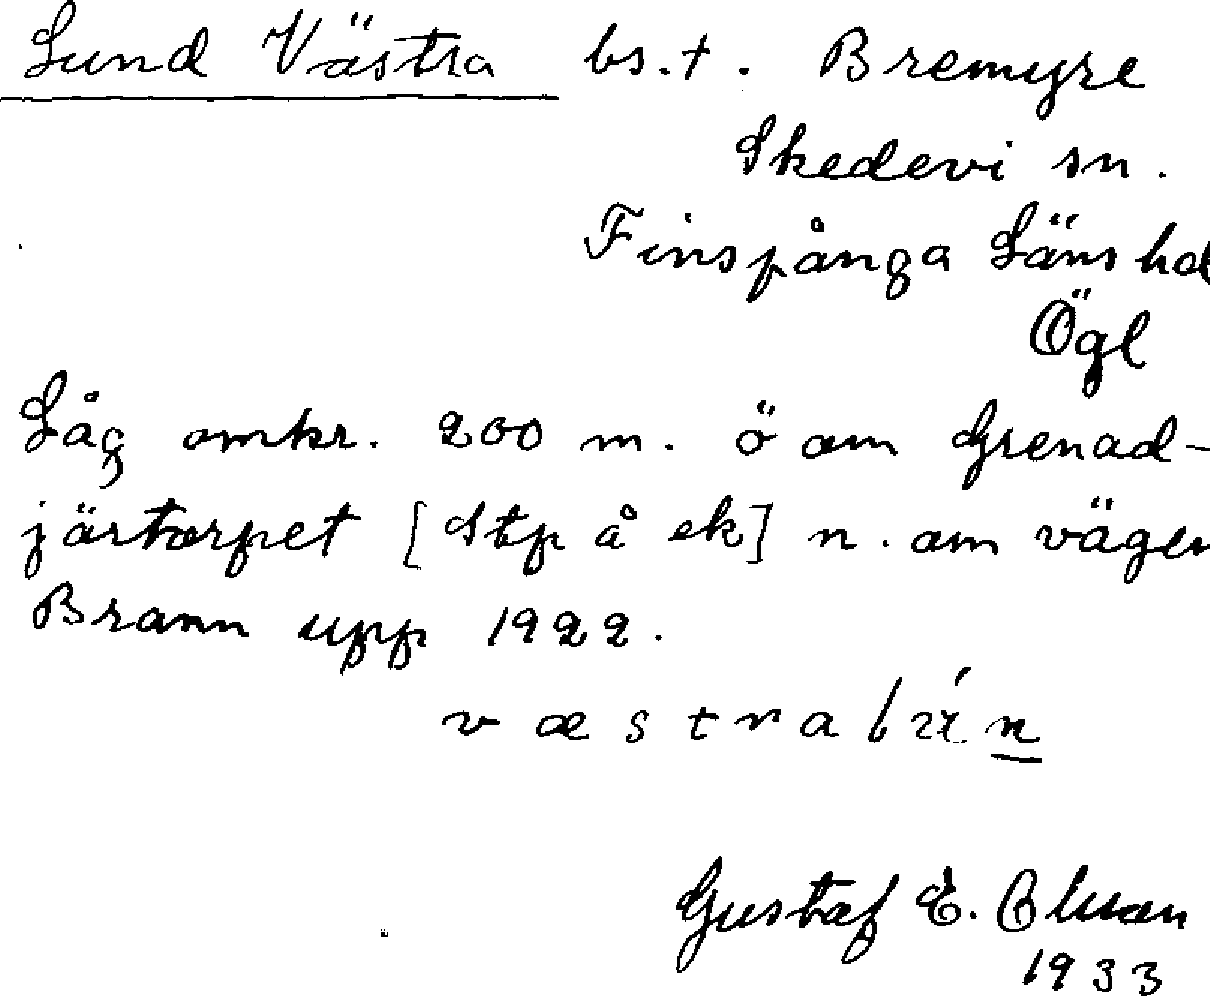 Lund Västra bs.t. Bremyre
Skedevi sn.
Finspånga Läns hd
Ögl
Låg omkr. 200 m. ö om Grenad-
järtorpet [Stp å ek] n. om vägen
Brann upp 1922.
Gustaf E. Olsson
1933